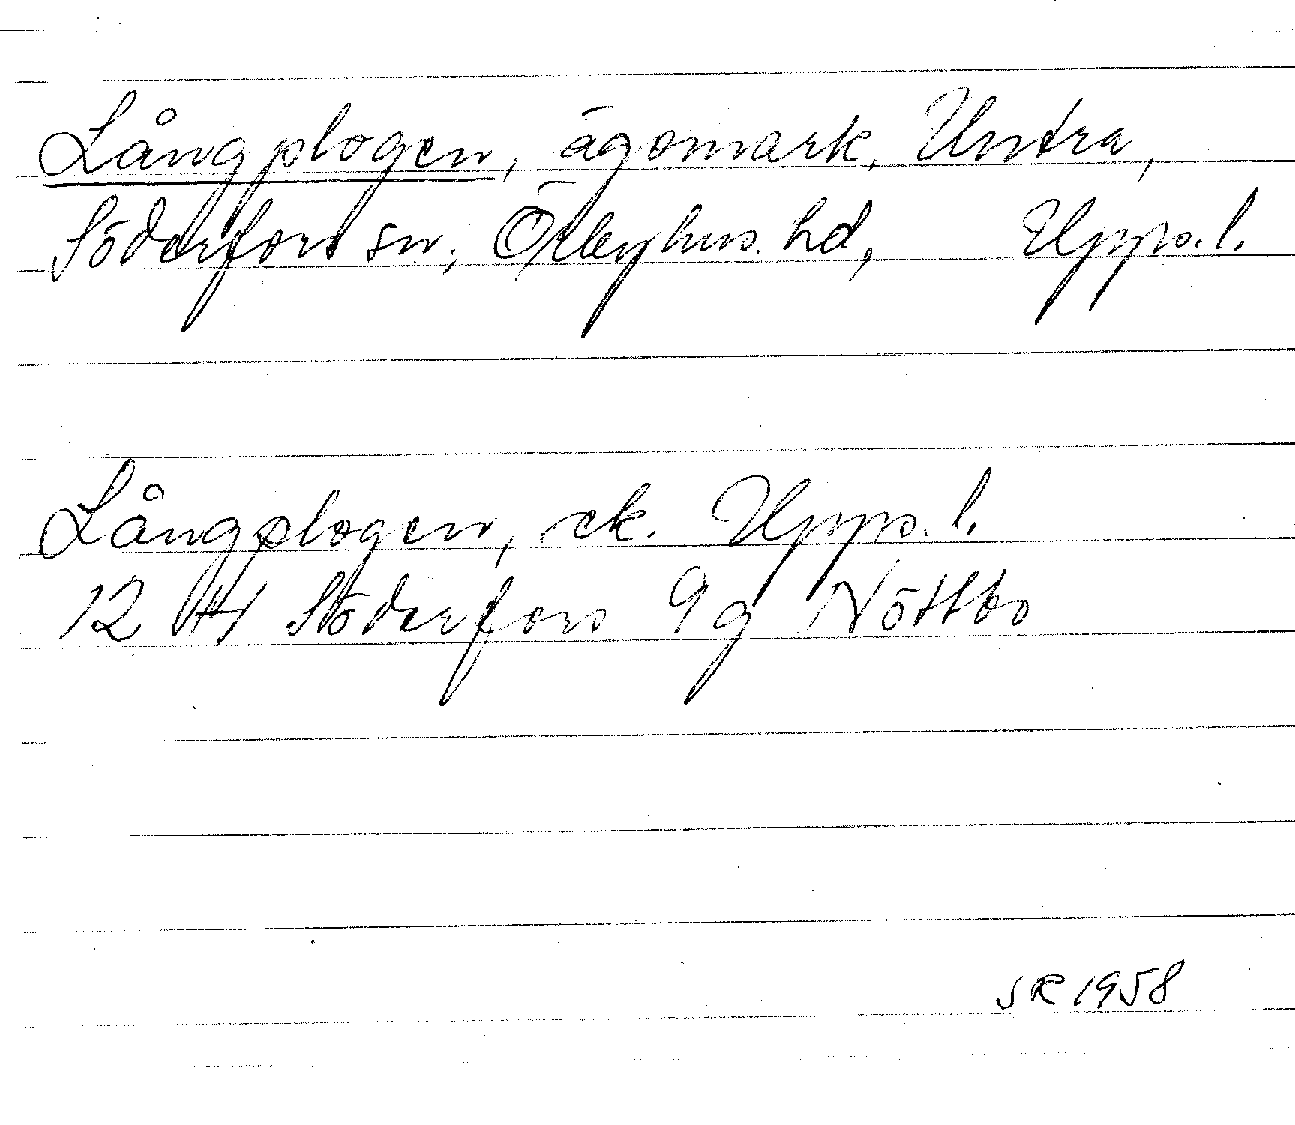 Långplogen, ägomark, Untra,
Söderfors sn, Örbyhus hd, Upps. l.
Långplogen, ek. Upps. l.
12 H Söderfors 9g Nöttbo
SR 1958